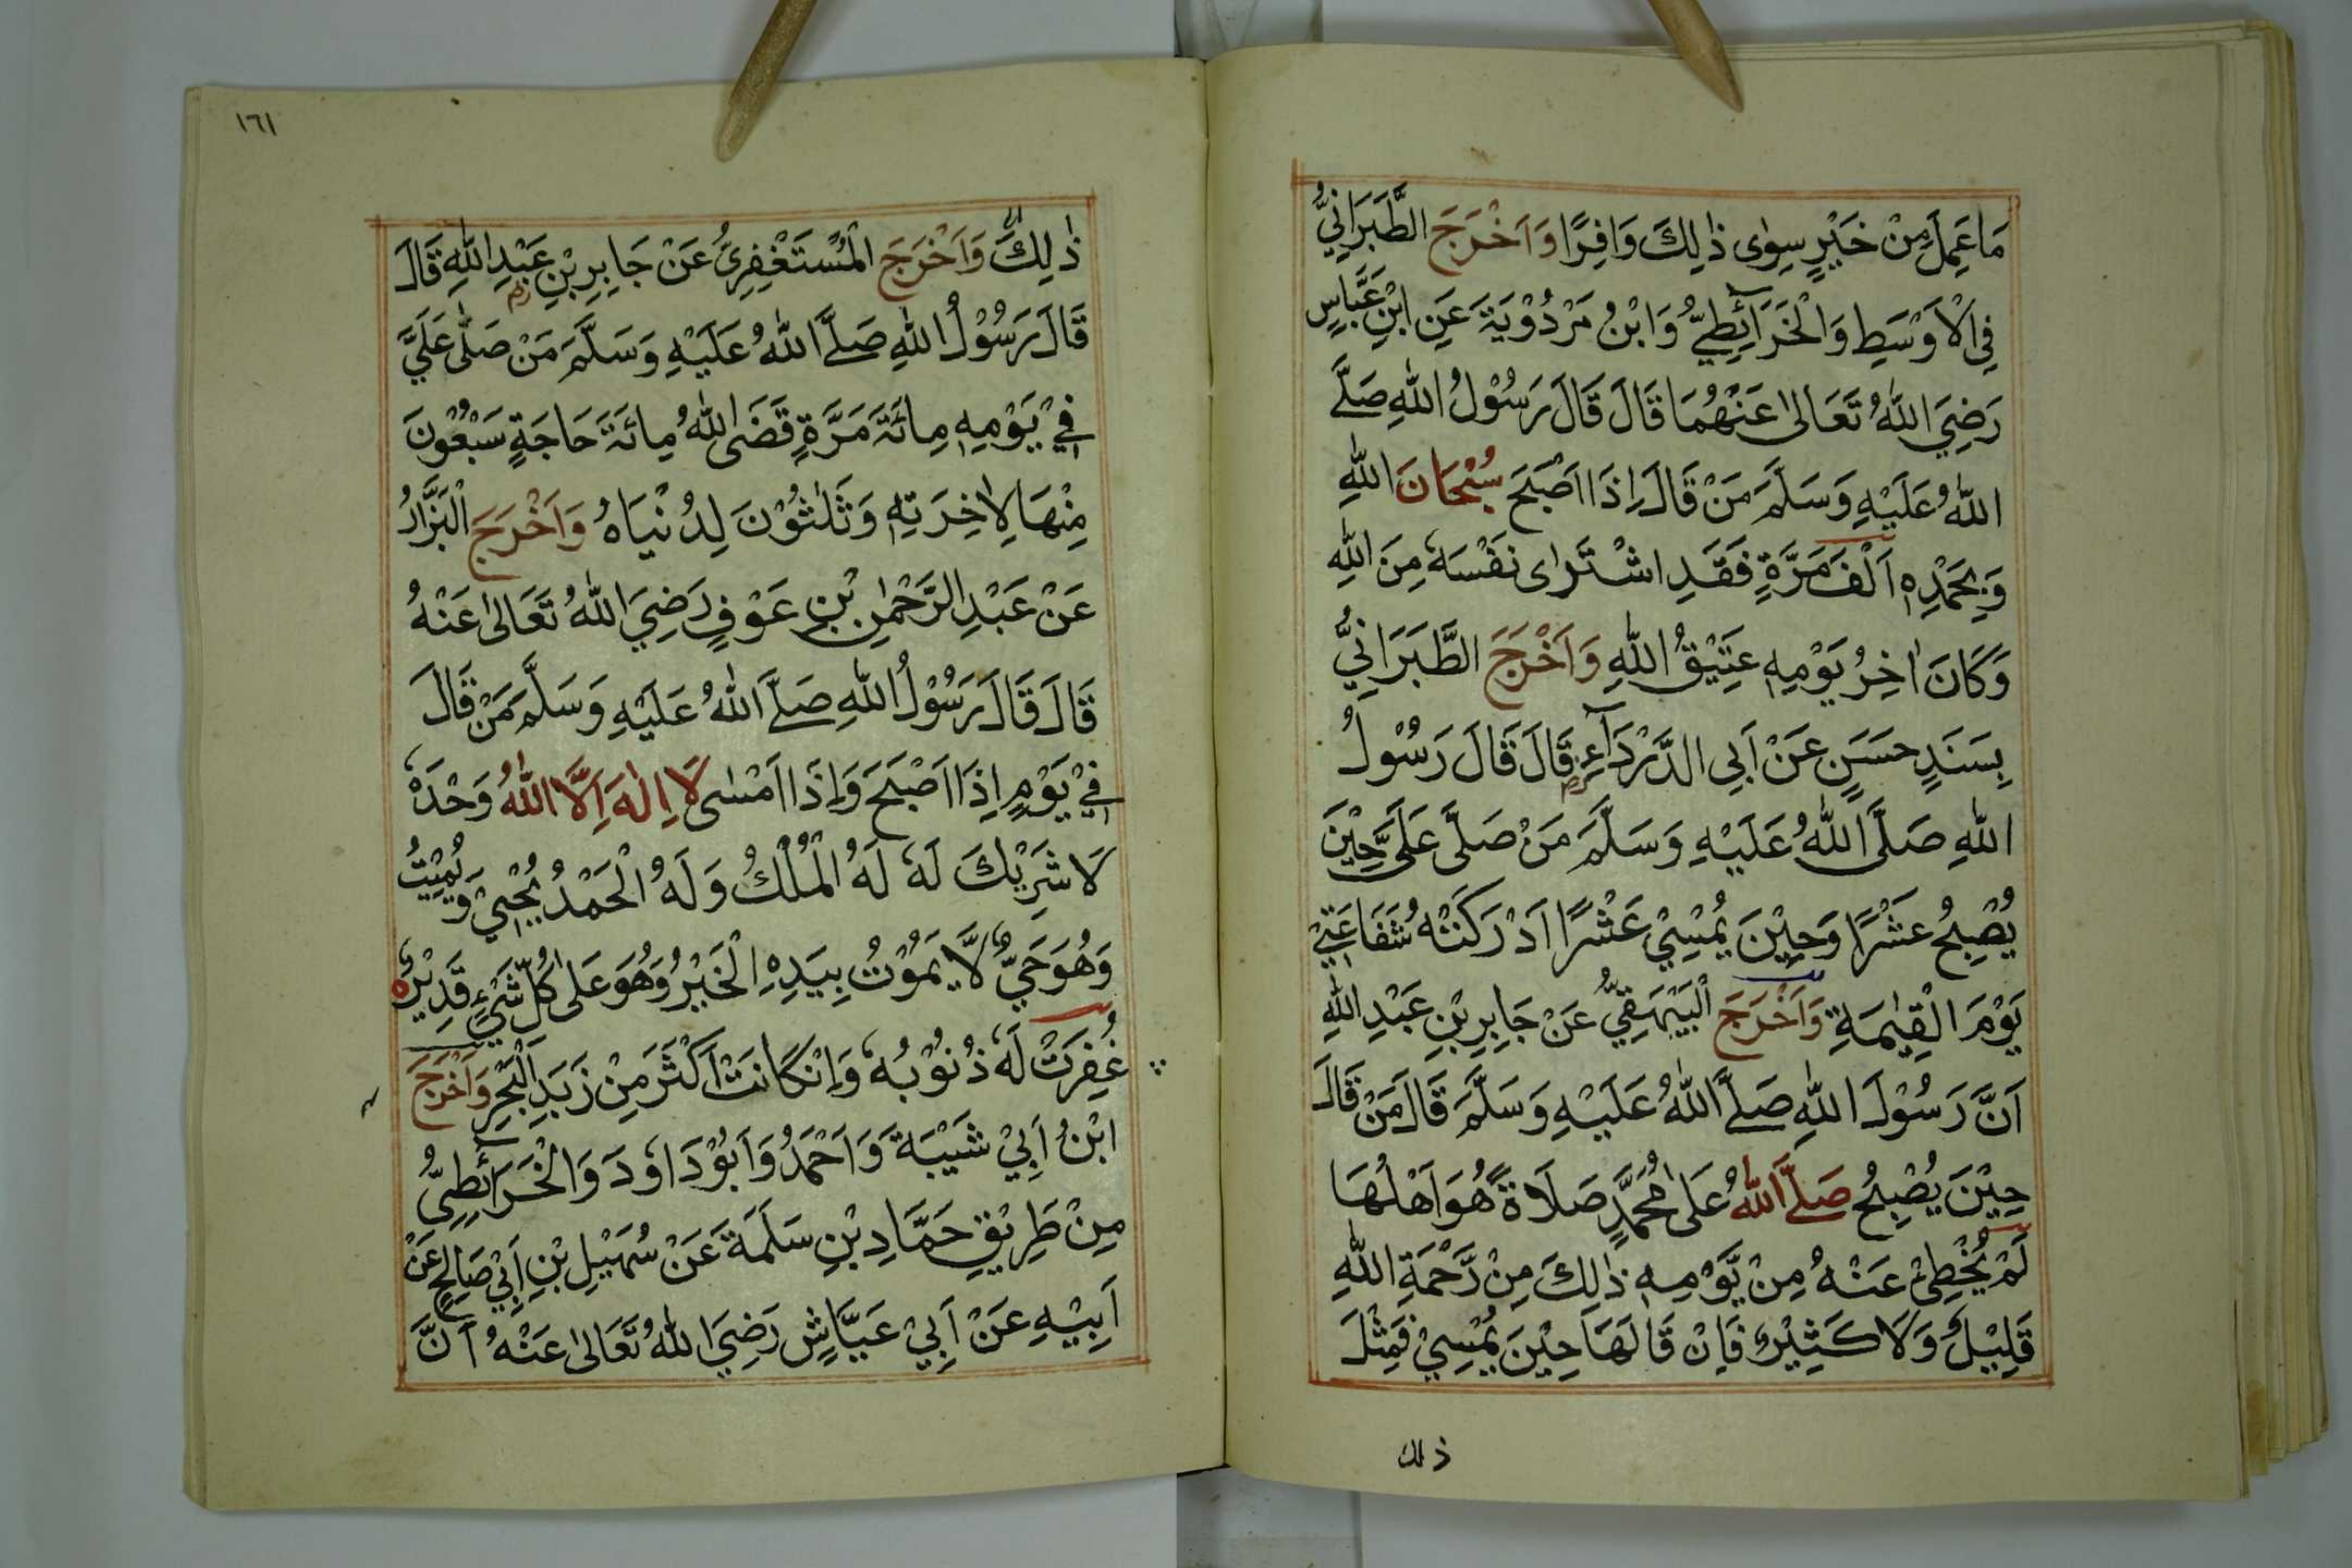 مَا عَمِلَ مِنْ خَيْرٍ سِوٰى ذٰلِكَ وَافِرًا وَاَخْرَجَ الطَّبَرَانِيُّ
فِي الْاَوْسَطِ وَالْخَرَائِطِيُّ وَابْنُ مَرْدُوْيَةَ عَنِ ابْنِ عَبَّاسٍ
رَضِيَ اللّٰهُ تَعَالٰى عَنْهُمَا قَالَ قَالَ رَسُوْلُ اللّٰهِ صَلَّے
اللّٰهُ عَلَيْهِ وَسَلَّمَ مَنْ قَالَ اِذَا اَصْبَحَ سُبْحَانَ اللّٰهِ
وَبِحَمْدِهٖ اَلْفَ مَرَّةٍ فَقَدِ اشْتَرٰى نَفْسَهٗ مِنَ اللّٰهِ
وَكَانَ اٰخِرُ يَوْمِهٖ عَتِيْقُ اللّٰهِ وَاَخْرَجَ الطَّبَرَانِيُّ
بِسَنَدٍ حَسَنٍ عَنْ اَبِي الدَّرْدَآءِ رض قَالَ قَالَ رَسُوْلُ
اللّٰهِ صَلَّى اللّٰهُ عَلَيْهِ وَسَلَّمَ مَنْ صَلَّى عَلَيَّ حِيْنَ
يُصْبِحُ عَشْرًا وَحِيْنَ يُمْسِيْ عَشْرًا اَدْرَكَتْهُ شَفَاعَتِيْ
يَوْمَ الْقِيٰمَةِ وَاَخْرَجَ الْبَيْهَقِيُّ عَنْ جَابِرِ بْنِ عَبْدِ اللّٰهِ
اَنَّ رَسُوْلَ اللّٰهِ صَلَّے اللّٰهُ عَلَيْهِ وَسَلَّمَ قَالَ مَنْ قَالَ
حِيْنَ يُصْبِحُ صَلَّے اللّٰهُ عَلٰى مُحَمَّدٍ صَلَاةً هُوَ اَهْلُهَا
لَمْ يُخْطِئْ عَنْهُ مِنْ يَّوْمِهٖ ذٰلِكَ مِنْ رَّحْمَةِ اللّٰهِ
قَلِيْلٌ وَلَا كَثِيْرٌ فَاِنْ قَالَهَا حِيْنَ يُمْسِيْ فَمِثْلَ
ذلك
١٦١
ذٰلِكَ وَاَخْرَجَ الْمُسْتَغْفِرِيُّ عَنْ جَابِرِ بْنِ عَبْدِ اللّٰهِ رض قَالَ
قَالَ رَسُوْلُ اللّٰهِ صَلَّے اللّٰهُ عَلَيْهِ وَسَلَّمَ مَنْ صَلّٰى عَلَيَّ
فِيْ يَوْمِهٖ مِائَةَ مَرَّةٍ قَضَى اللّٰهُ مِائَةَ حَاجَةٍ سَبْعُوْنَ
مِنْهَا لِاٰخِرَتِهٖ وَثَلٰثُوْنَ لِدُنْيَاهُ وَاَخْرَجَ الْبَزَّارُ
عَنْ عَبْدِ الرَّحْمٰنِ بْنِ عَوْفٍ رَضِيَ اللّٰهُ تَعَالٰى عَنْهُ
قَالَ قَالَ رَسُوْلُ اللّٰهِ صَلَّے اللّٰهُ عَلَيْهِ وَسَلَّمَ مَنْ قَالَ
فِيْ يَوْمٍ اِذَا اَصْبَحَ وَاِذَا اَمْسٰى لَا اِلٰهَ اِلَّا اللّٰهُ وَحْدَهٗ
لَا شَرِيْكَ لَهٗ لَهُ الْمُلْكُ وَلَهُ الْحَمْدُ يُحْيِيْ وَيُمِيْتُ
وَهُوَ حَيٌّ لَّا يَمُوْتُ بِيَدِهِ الْخَيْرُ وَهُوَ عَلٰى كُلِّ شَيْءٍ قَدِيْرٌ
غُفِرَتْ لَهٗ ذُنُوْبُهٗ وَاِنْ كَانَتْ اَكْثَرَ مِنْ زَبَدِ الْبَحْرِ وَاَخْرَجَ
ابْنُ اَبِيْ شَيْبَةَ وَاَحْمَدُ وَاَبُوْ دَاوٗدَ وَالْخَرَائِطِيُّ
مِنْ طَرِيْقِ حَمَّادِ بْنِ سَلَمَةَ عَنْ سُهَيْلِ بْنِ اَبِيْ صَالِحٍ عَنْ
اَبِيْهِ عَنْ اَبِيْ عَيَّاشٍ رَضِيَ اللّٰهُ تَعَالٰى عَنْهُ اَنَّ